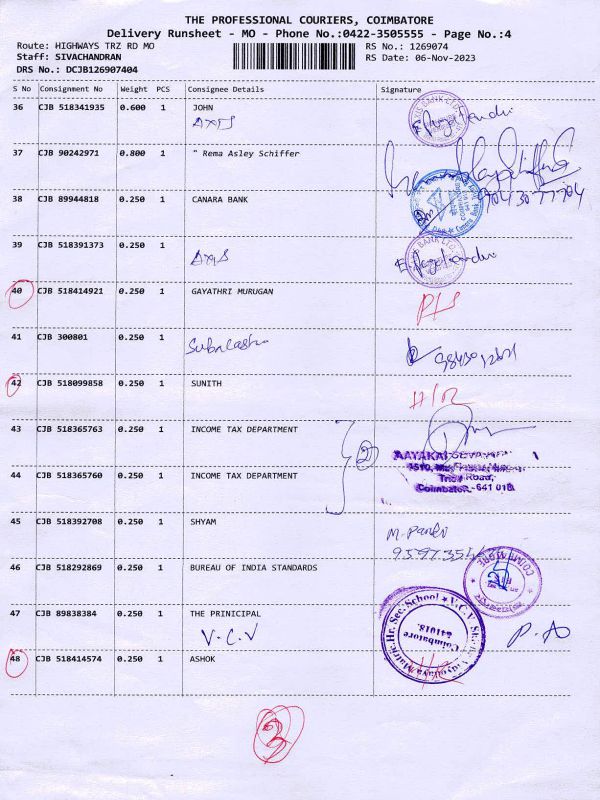 THE PROFESSIONAL COURIERS, COIMBATORE
Delivery Runsheet - MO - Phone No.:0422-3505555 - Page No.:4
Route: HIGHWAYS TRZ RD MO
RS No.: 1269074
Staff: SIVACHANDRAN
RS Date: 06-Nov-2023
DRS No.: DCJB126907404
S No Consignment No Weight PCS Consignee Details Signature
36 CJB 518341935 0.600 1 JOHN
AXIS
AXIS BANK LTD.
37 CJB 90242971 0.800 1 " Rema Asley Schiffer
970430 77904
38 CJB 89944818 0.250 1 CANARA BANK
39 CJB 518391373 0.250 1
AXIS
AXIS BANK LTD.
40 CJB 518414921 0.250 1 GAYATHRI MURUGAN
P/S
41 CJB 300801 0.250 1
42 CJB 518099858 0.250 1 SUNITH
43 CJB 518365763 0.250 1 INCOME TAX DEPARTMENT
2
44 CJB 518365760 0.250 1 INCOME TAX DEPARTMENT
Trichy Road,
Coimbatore - 641 018
45 CJB 518392708 0.250 1 SHYAM
46 CJB 518292869 0.250 1 BUREAU OF INDIA STANDARDS
47 CJB 89838384 0.250 1 THE PRINICIPAL
V.C.V
Matric. Hr. Sec. School * V.C.V
Coimbatore
641018.
48 CJB 518414574 0.250 1 ASHOK
3